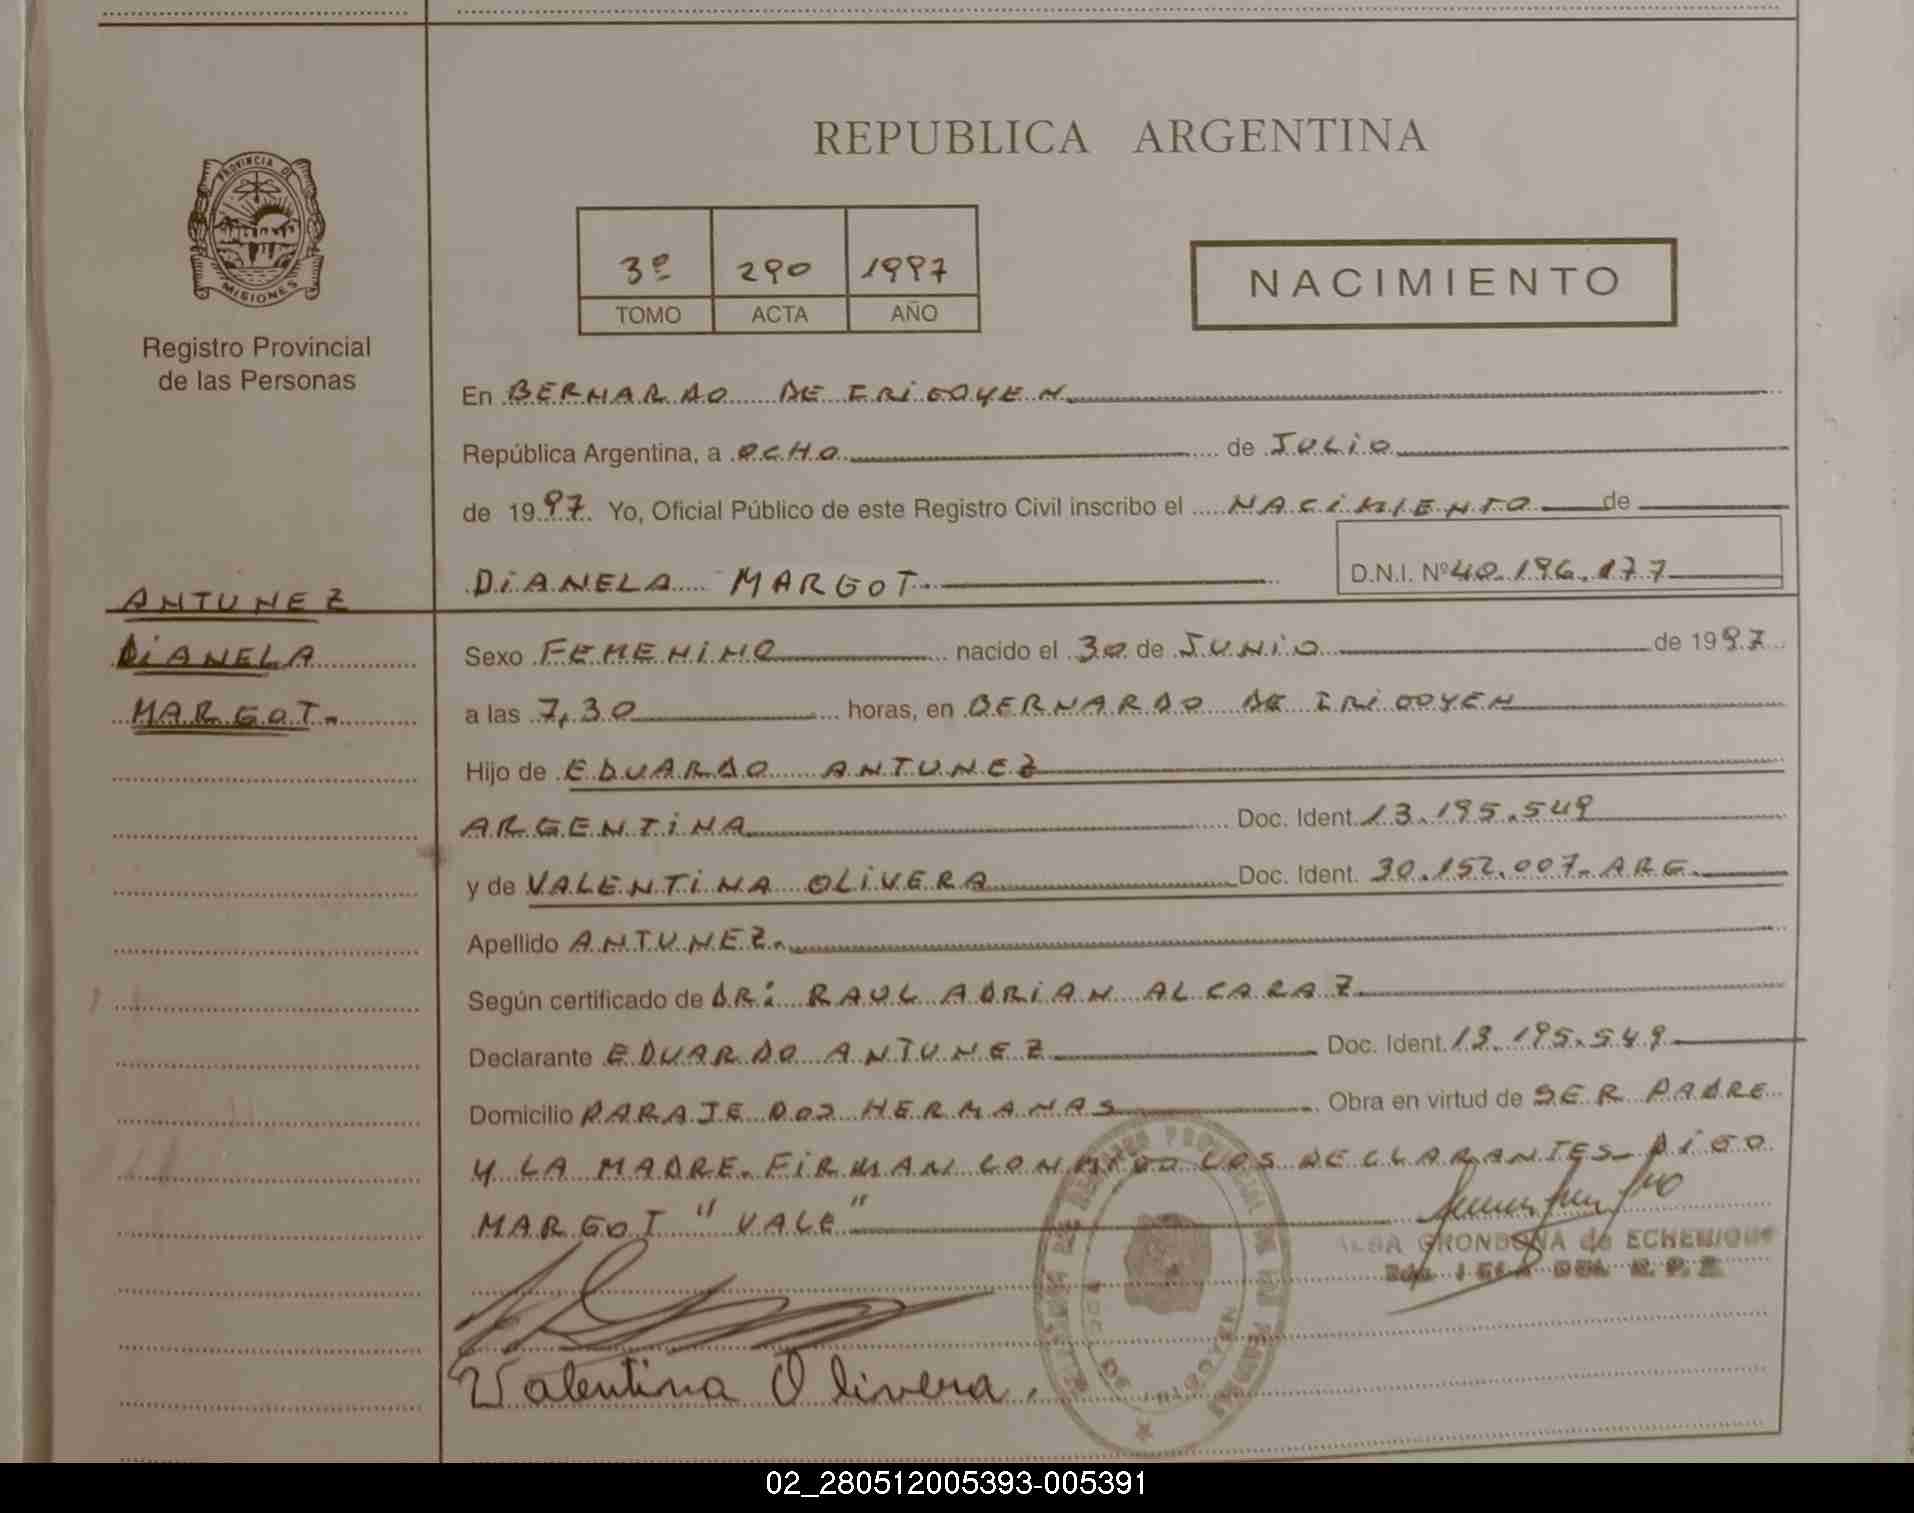 REPUBLICA ARGENTINA
PROVINCIA DE
MISIONES
Registro Provincial
de las Personas
3º 290 1997
TOMO ACTA AÑO
NACIMIENTO
En BERNARDO DE IRIGOYEN
República Argentina, a OCHO de JULIO
de 1997. Yo, Oficial Público de este Registro Civil inscribo el NACIMIENTO de
DIANELA MARGOT. D.N.I. Nº 40.196.177
ANTUNEZ
DIANELA
MARGOT.
Sexo FEMENINO nacido el 30 de JUNIO de 1997
a las 7,30 horas, en BERNARDO DE IRIGOYEN
Hijo de EDUARDO ANTUNEZ
ARGENTINA Doc. Ident. 13.195.549
y de VALENTINA OLIVERA Doc. Ident. 30.152.007. ARG.
Apellido ANTUNEZ.
Según certificado de DR: RAUL ADRIAN ALCARAZ
Declarante EDUARDO ANTUNEZ Doc. Ident. 13.195.549
Domicilio PARAJE DOS HERMANAS Obra en virtud de SER PADRE
Y LA MADRE. FIRMAN CONMIGO LOS DECLARANTES_ DIGO
MARGOT "VALE"
ALBA GRONDONA de ECHENIQUE
Valentina Olivera.
02_280512005393-005391